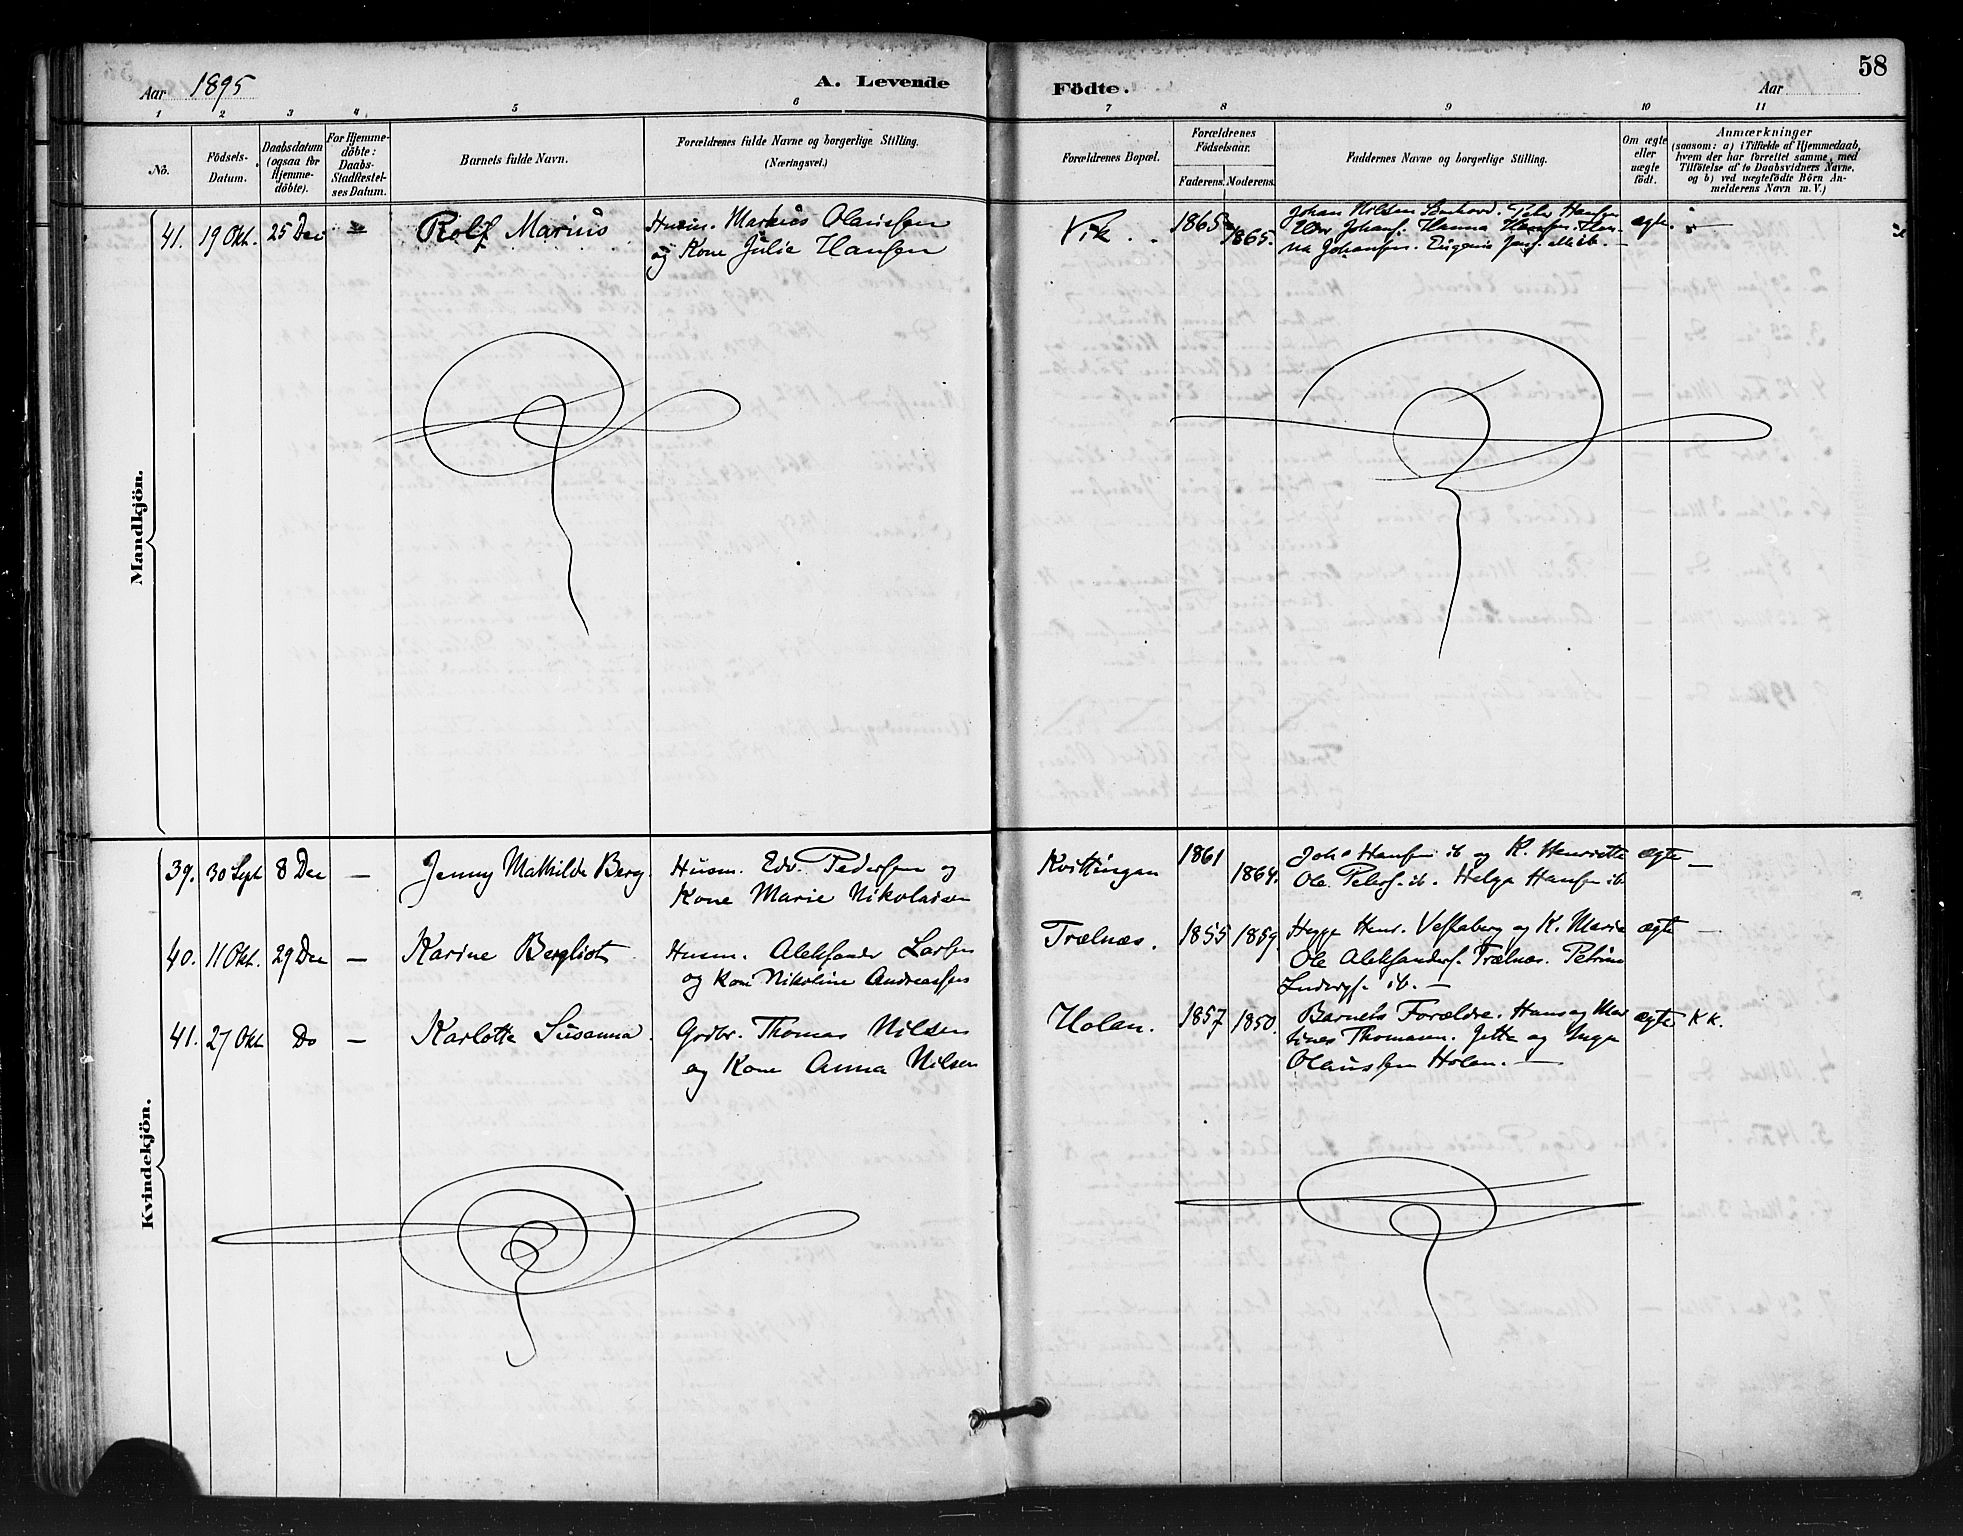 Aar 1895
A. Levende
Födte.
Aar
58
1 2 3 4 5 6 7 8 9 10 11
No.
Födsels-
Datum.
Daabsdatum
(ogsaa for
Hjemme-
döbte).
For Hjemme-
döbte:
Daabs-
Stadfæstel-
ses Datum.
Barnets fulde Navn.
Forældrenes fulde Navne og borgerlige Stilling.
(Næringsvei.)
Forældrenes Bopæl.
Forældrenes
Födselsaar.
Faderens. Moderens.
Faddernes Navne og borgerlige Stilling.
Om ægte
eller
uægte
født.
Anmærkninger
(saasom: a) i Tilfælde af Hjemmedaab,
hvem der har forrettet samme, med
Tilföielse af to Daabsvidners Navne,
og b) ved uægtefödte Börn An-
melderens Navn m. V.)
Mandkjön.
41. 19 Okt. 25 Dec — Rolf Marius
Husm. Markus Olaussen
og Kone Julie Hansen
Vik. 1865 1865.
Johan Nilsen Peder Hansen
Johans. Hanna Hansen.
Johansen. Eugenie ib. —
ægte. —
Kvindekjön.
39. 30 Sept 8 Dec — Jenny Mathilde Berg.
Husm. Edv. Pedersen og
Kone Marie Nikolaisen
Kvittingen 1861 1864.
Johs Hansen ib og K. Henriette
Ole Peders. ib. Helga Hansen ib
ægte —
40. 11 Okt. 29 Dec — Karine Bergliot
Husm. Aleksander Larsen
og Kone Nikoline Andreassen
Trælnæs. 1855 1859.
Hegge Henr. Vestaberg og K. Marie
Ole Aleksanders. Trælnæs. Petrine
Ludvigs. ib. —
ægte —
41. 27 Okt Do — Karlotte Susanna.
Gdbr. Thomas Nilsen
og Kone Anna Nilsen
Holan. 1857 1850.
Barnets Forældre. Hans og Mar
tines Thomasen. Jette og Inga
Olaussen Holan. —
ægte KK.